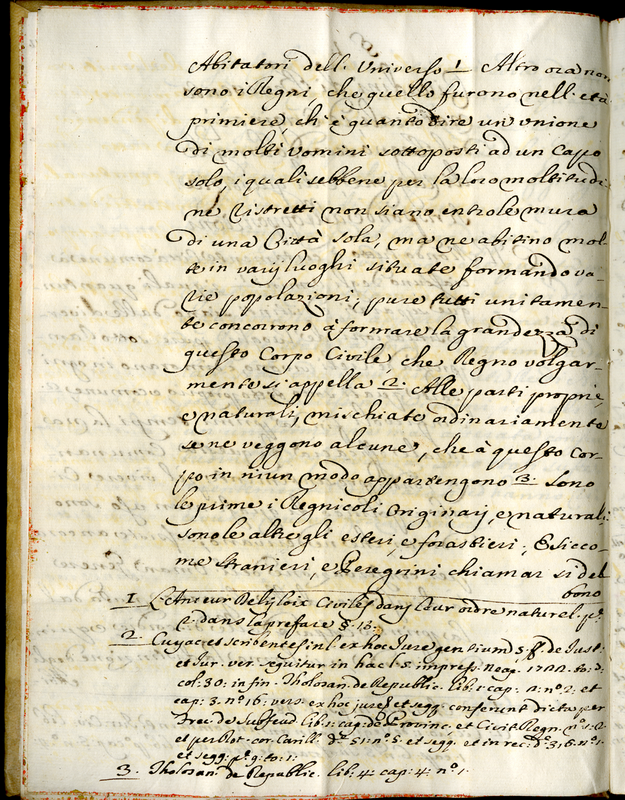 Abitatori dell'Universo 1. Altro ora non
sono i Regni, che quello furono nell'età
primiere, ch'è quanto dire un'unione
di molti Uomini sottoposti ad un Capo
solo, i quali sebbene per la loro moltitudi
ne, ristretti non siano entro le mura
di una Città sola, ma ne abitino mol-
te in varij luoghi situate formando va-
rie popolazioni, pure tutti unitamen-
te concorrono à formare la grandezza di
questo Corpo Civile, che Regno volgar-
mente si appella 2. Alle parti proprie,
e naturali, mischiate ordinariamente
se ne veggono alcune, che à questo Cor-
po in niun modo appartengono 3. Sono
le prime i Regnicoli Originarj, e naturali
sono le altre gli esteri, e forastieri; E sicco-
me stranieri, e Peregrini chiamar si deb
bono
1. L'Auteur Des loix Civiles dans leur ordre naturel. p.e
1: dans la preface §. 13.
2. Cuyac: et scribentes in l. ex hoc Jure gentium 5. ff. de Just:
et Jur. ver. seguitur in hac l. 5. impress. Neap. to:
col: 30: in fin. Tholosan: de Republic. lib: 1: cap: n.o 2: et
cap: 3. n.o 16: vers: ex hoc jure et segg: conferunt dicta per
Frec: de Subfeud. lib: 1: de Provinc: et Civit. Regn. n.o 1: 2
et per Rot: cor: Carill. 51: n.o 5. et segg. et in rec: 316. n.o 1.
et segg: p.e 9. to: 1:
3. Tholosan: de Republic. lib: 4: cap: 4: n.o 1.